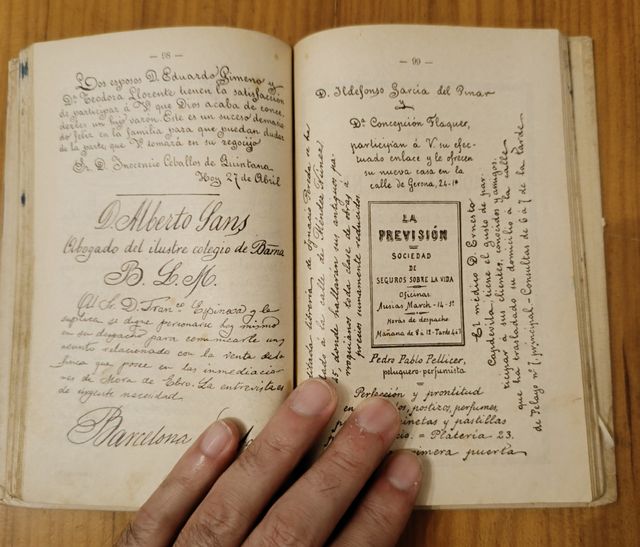 — 98 —
Los esposos D. Eduardo Gimeno y
Dª Teodora Llorente tienen la satisfacción
de participar á V. que Dios acaba de conce-
derles un hijo varón. Este es un suceso dema-
do feliz en la familia para que puedan dudar
de la parte que V. tomará en su regocijo
Sr. D. Inocencio Ceballos de Quintana
Hoy 27 de Abril
D. Alberto Sans
Abogado del ilustre colegio de Barna
B. L. M.
Al Sr. D. Franco Espinosa y le
suplica se digne personarse hoy mismo
en su despacho para comunicarle un
asunto relacionado con la venta de la
finca que posee en las inmediacio-
nes de Mora de Ebro. La entrevista es
de urgente necesidad
Barcelona
— 99 —
D. Ildefonso García del Pinar
y
Dª Concepción Flaquer,
participan á V. su efec-
tuado enlace y le ofrecen
su nueva casa en la
calle de Gerona, 24-1º
librería de Ignacio
á la calle de Méndez Núñez
35, donde hallarán sus antiguos pa-
rroquianos toda clase de obras á
precios sumamente reducidos
LA
PREVISIÓN
SOCIEDAD
DE
SEGUROS SOBRE LA VIDA
Oficinas
Ausias March - 14 - 1º
Horas de despacho
Mañana de 8 á 12 - Tarde 4 á 7
El médico D. Ernesto
Capdevila tiene el gusto de par-
ticipar á sus clientes, conocidos y amigos,
que ha trasladado su domicilio á la calle
de Pelayo nº 1, principal - Consultas de 6 á 7 de la tarde
Pedro Pablo Pellicer,
peluquero-perfumista
Perfección y prontitud
en
postizos, perfumes,
y pastillas
= Platería 23.
primera puerta